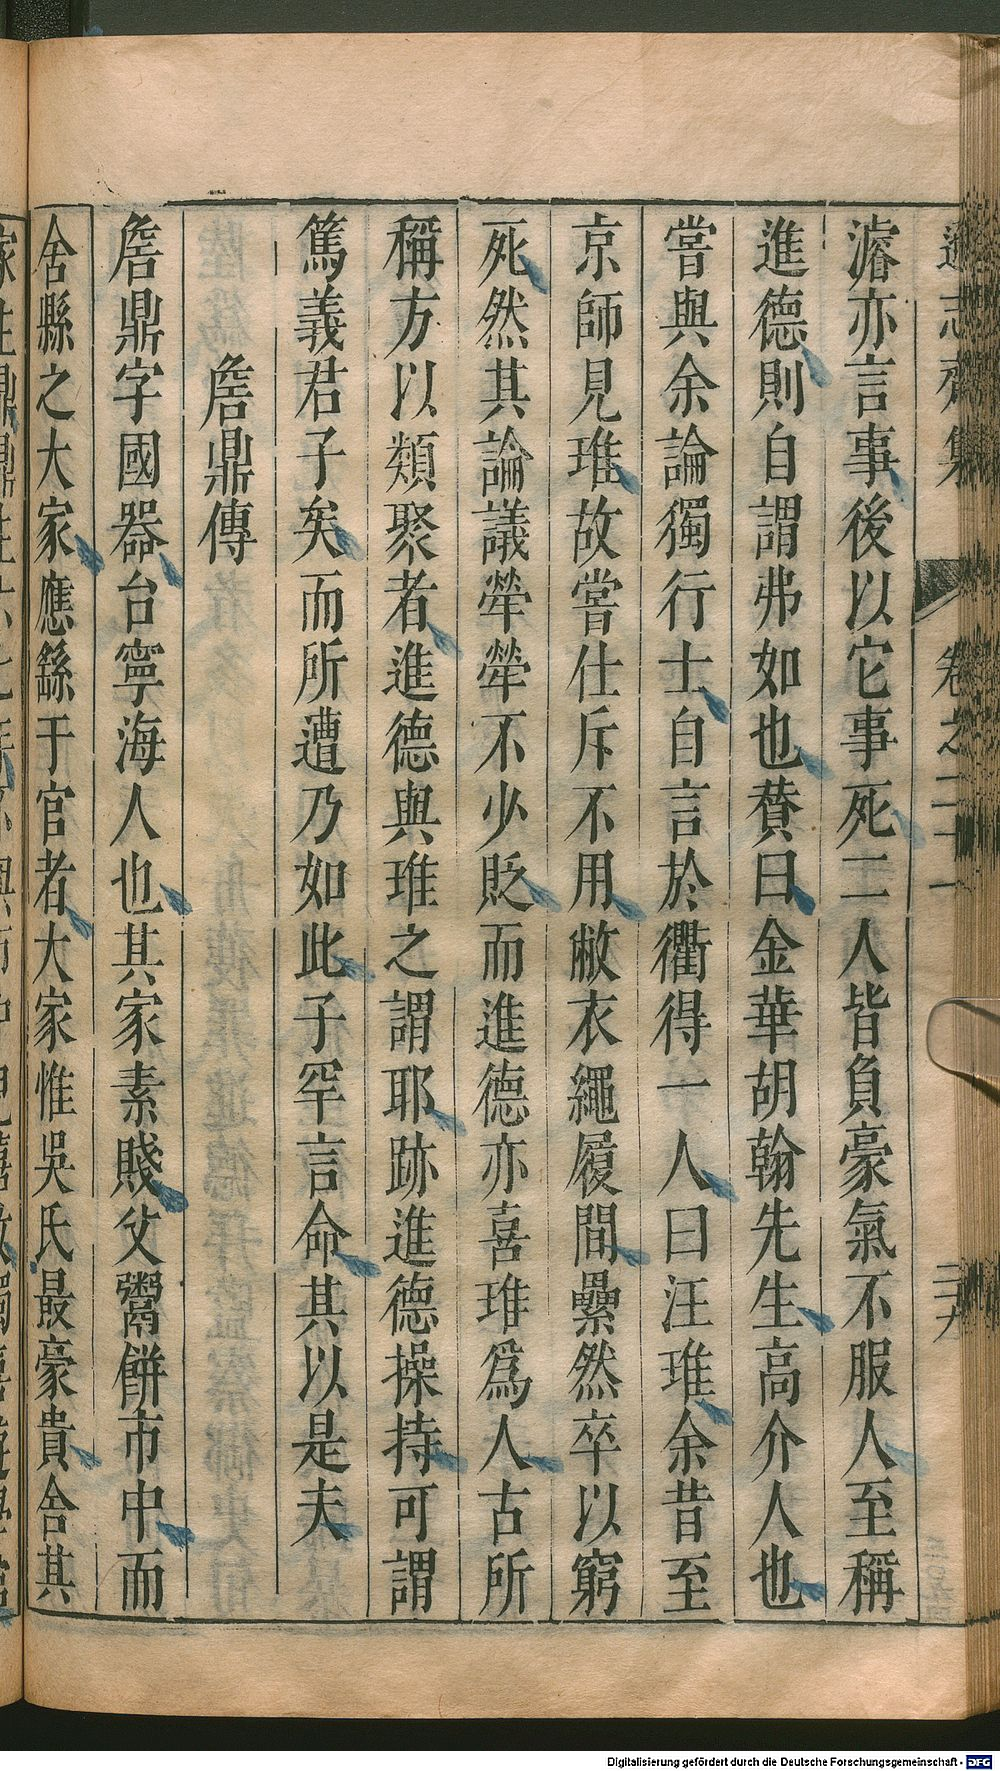 遜志齋集 卷之二十一 三十九
濬亦言事後以它事死二人皆負豪氣不服人至稱
進德則自謂弗如也賛曰金華胡翰先生高介人也
嘗與余論獨行士自言於衢得一人曰汪琟余昔至
京師見琟故嘗仕斥不用敝衣繩履間纍然卒以窮
死然其論議犖犖不少貶而進德亦喜琟爲人古所
稱方以類聚者進德與琟之謂耶跡進德操持可謂
篤義君子矣而所遭乃如此子罕言命其以是夫
詹鼎傳
詹鼎字國器台寧海人也其家素賤父鬻餅市中而
舍縣之大家應繇于官者大家惟吳氏最豪貴舍其
Digitalisierung gefördert durch die Deutsche Forschungsgemeinschaft - DFG